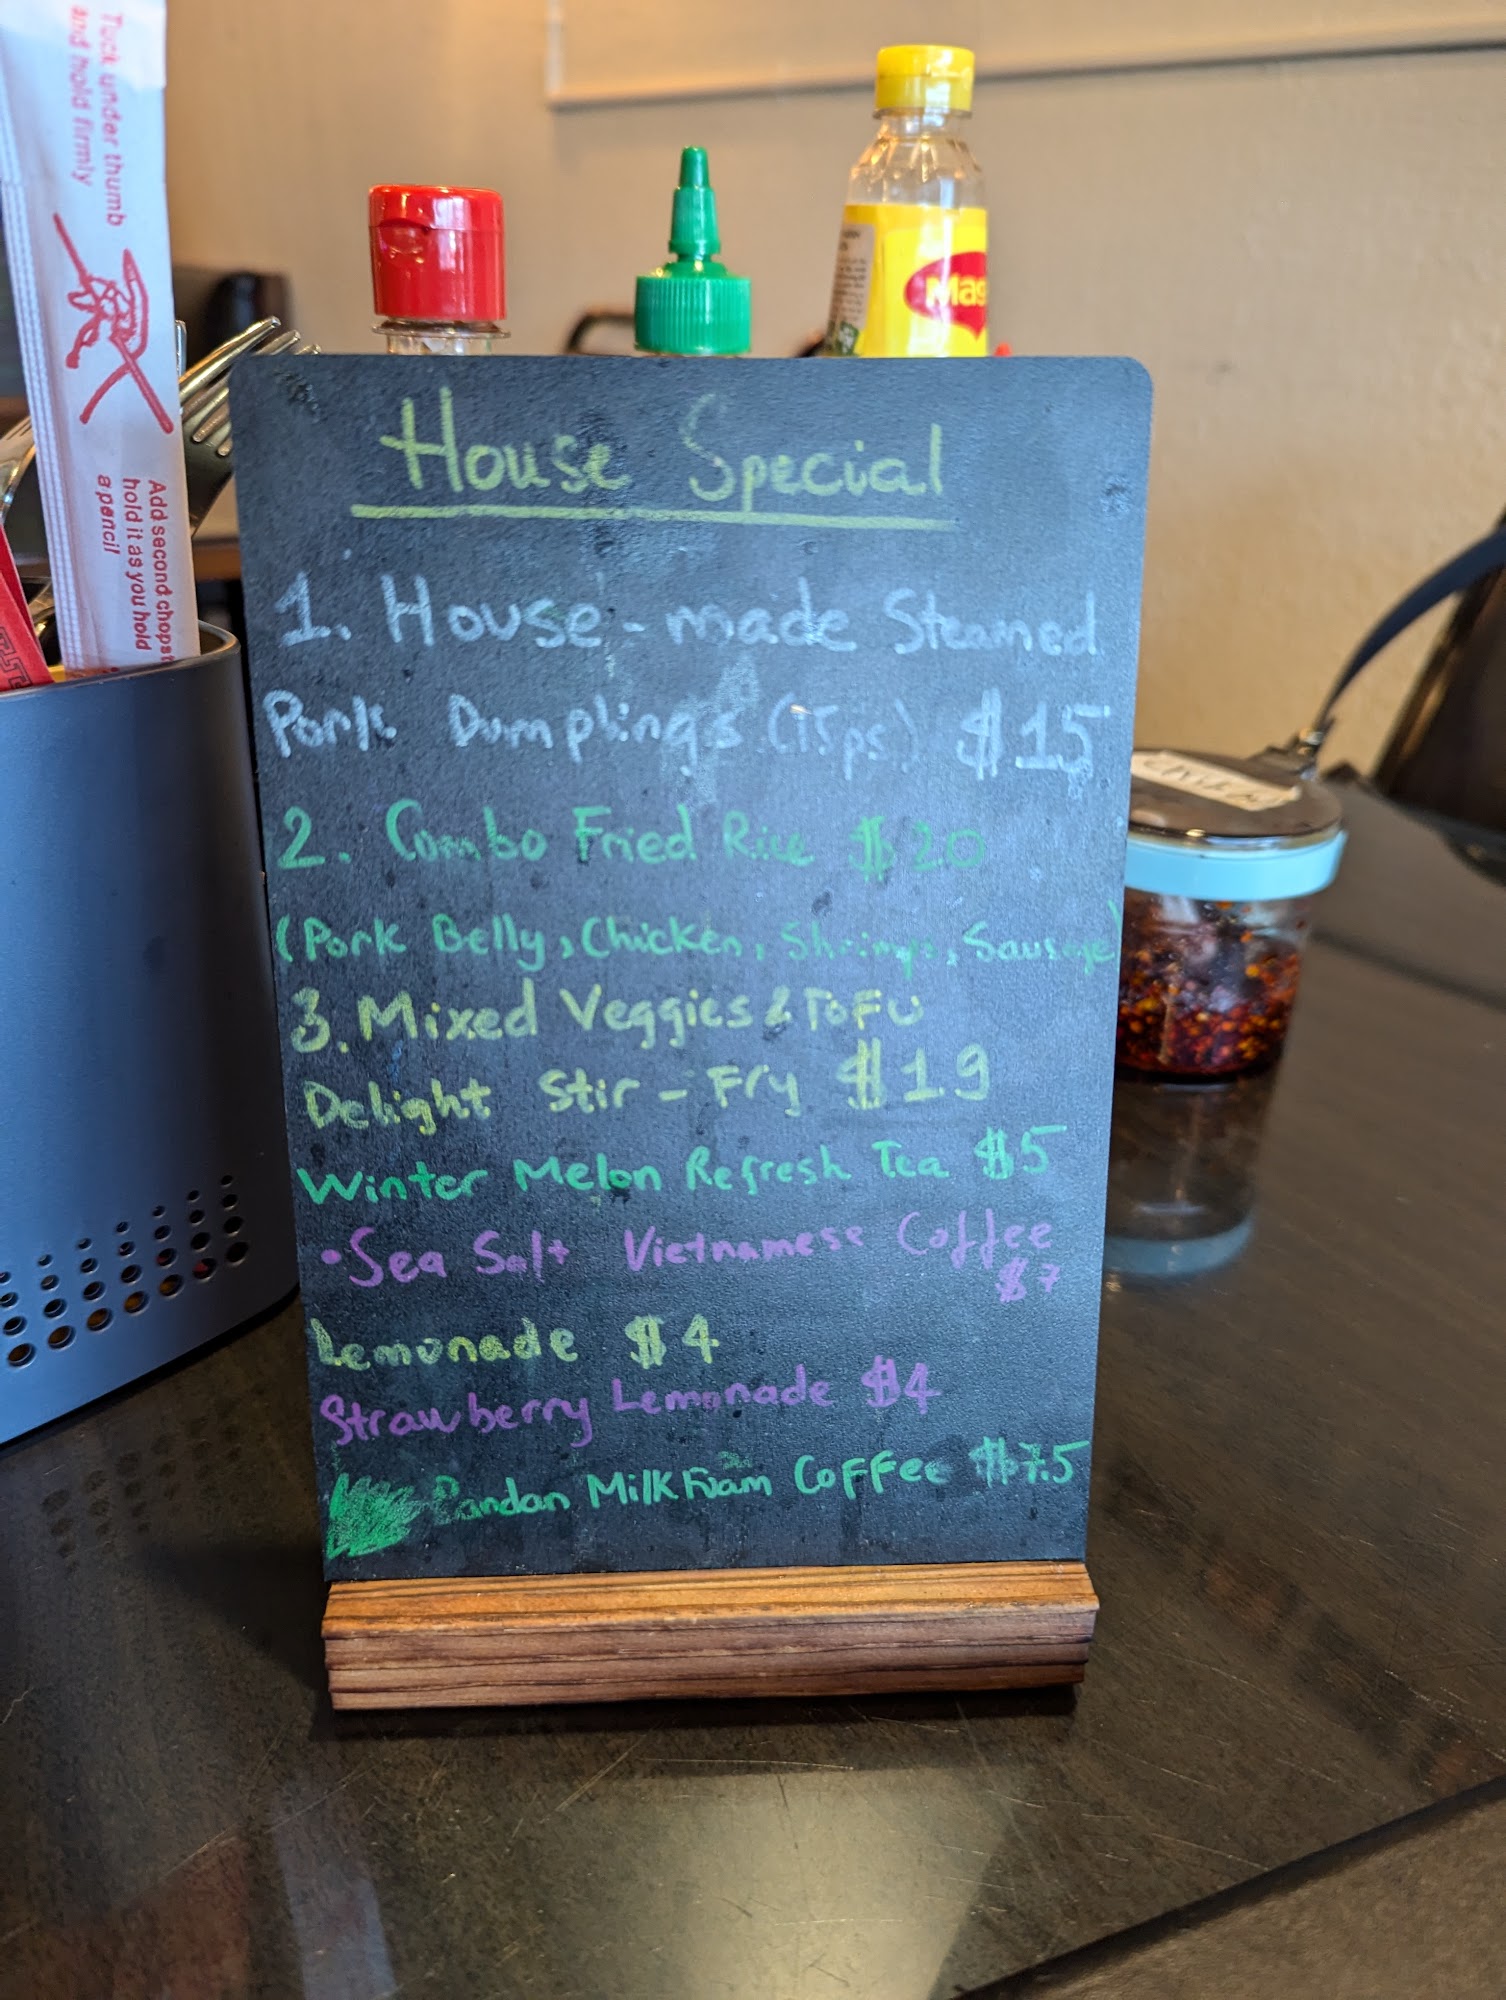 Tuck under thumb
and hold firmly
Add second chopst
hold it as you hold
a pencil
Mag
House Special
1. House-made Steamed
Pork Dumplings (15ps) $15
2. Combo Fried Rice $20
(Pork Belly, Chicken, Shrimps, Sausage)
3. Mixed Veggies & TOFU
Delight Stir-Fry $19
Winter Melon Refresh Tea $5
•Sea Salt Vietnamese Coffee
$7
Lemonade $4
Strawberry Lemonade $4
Pandan Milk Foam Coffee $7.5